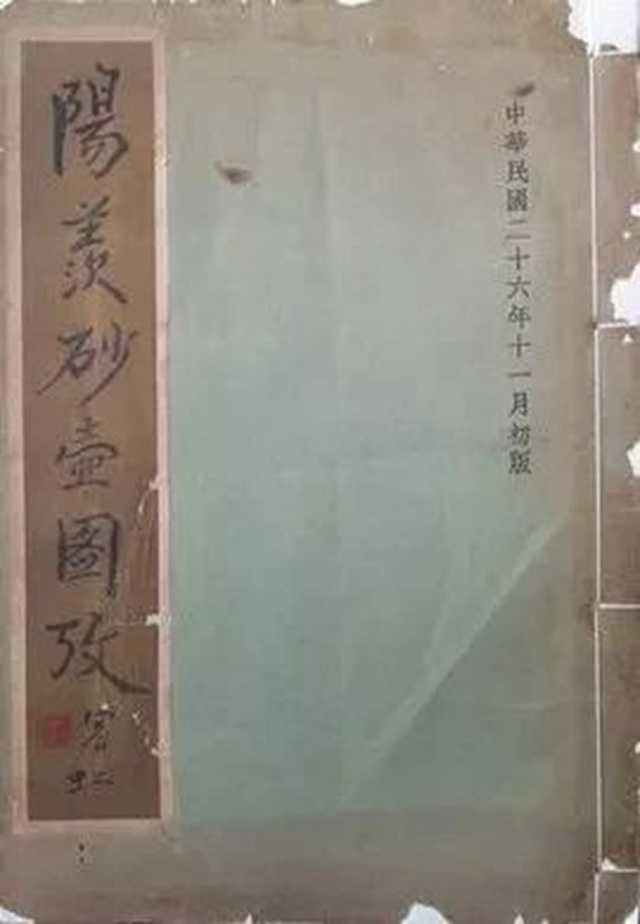 中華民國二十六年十一月初版
陽羨砂壺圖攷
宾虹